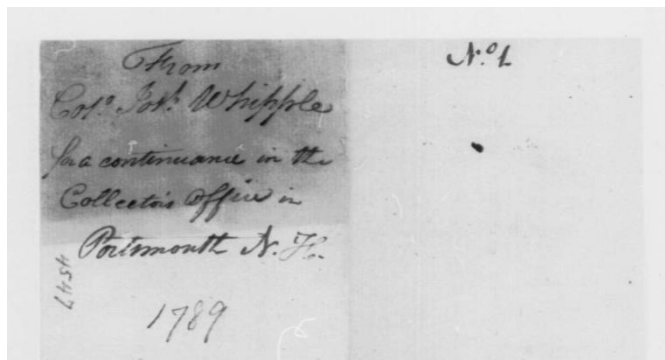 From
Colº Josh Whipple
for a continuance in the
Collector's Office in
Portsmouth N. H.
1789
4547
Nº 1